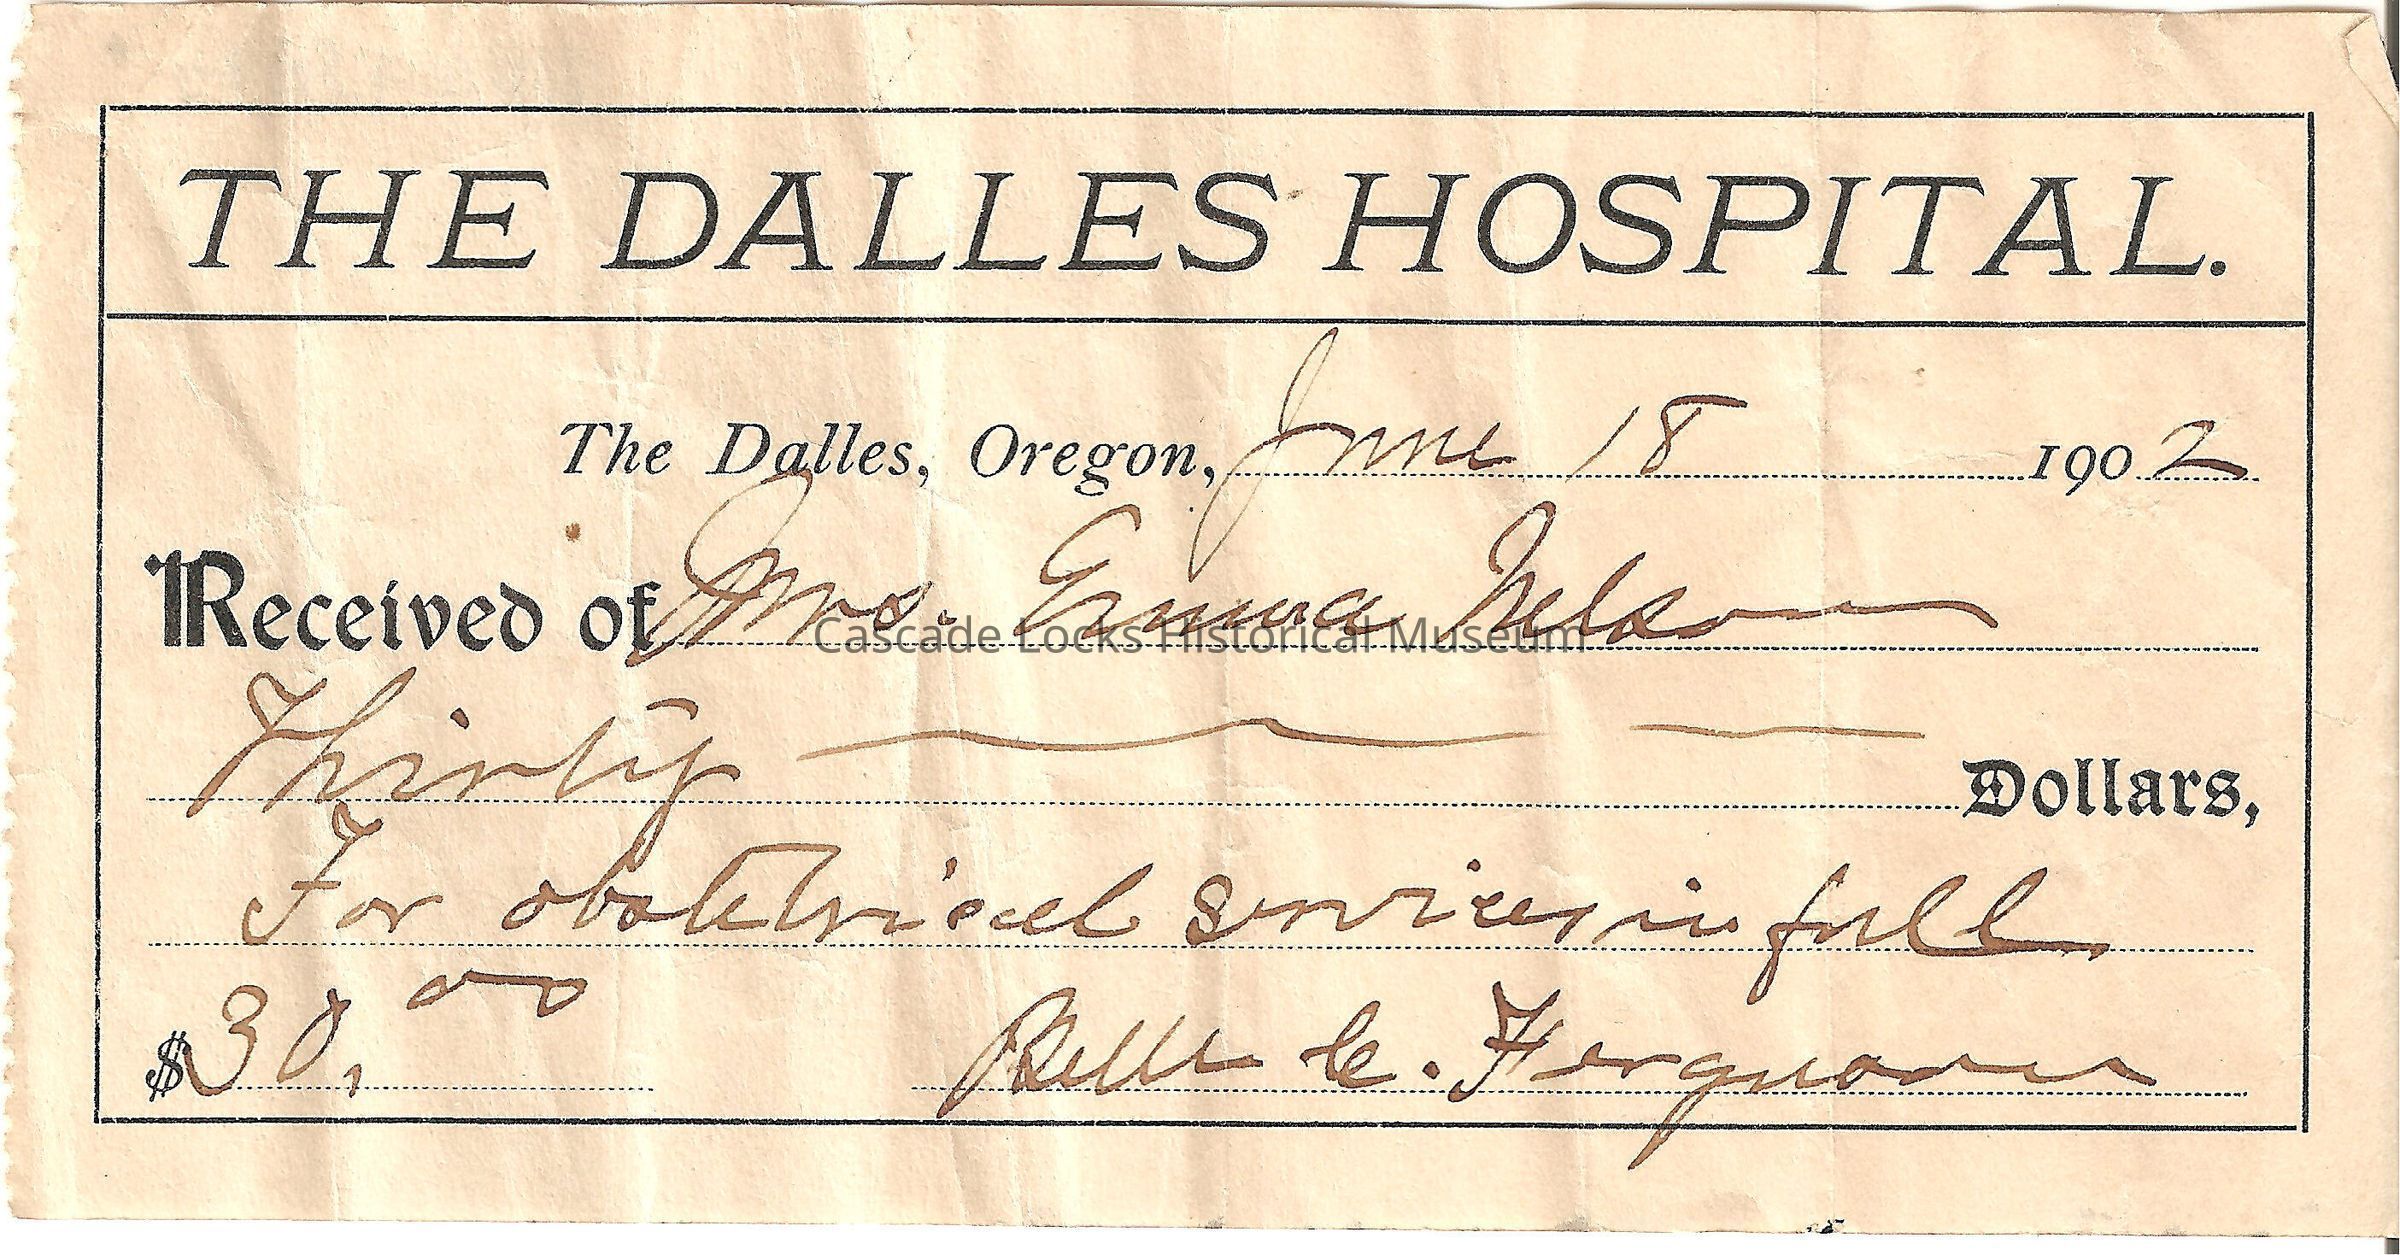 THE DALLES HOSPITAL.
The Dalles, Oregon, June 18 1902
Received of Mrs. Emma Nelson
Cascade Locks Historical Museum
Thirty Dollars,
For obstetrical services in full
$30.00 Belle C. Ferguson